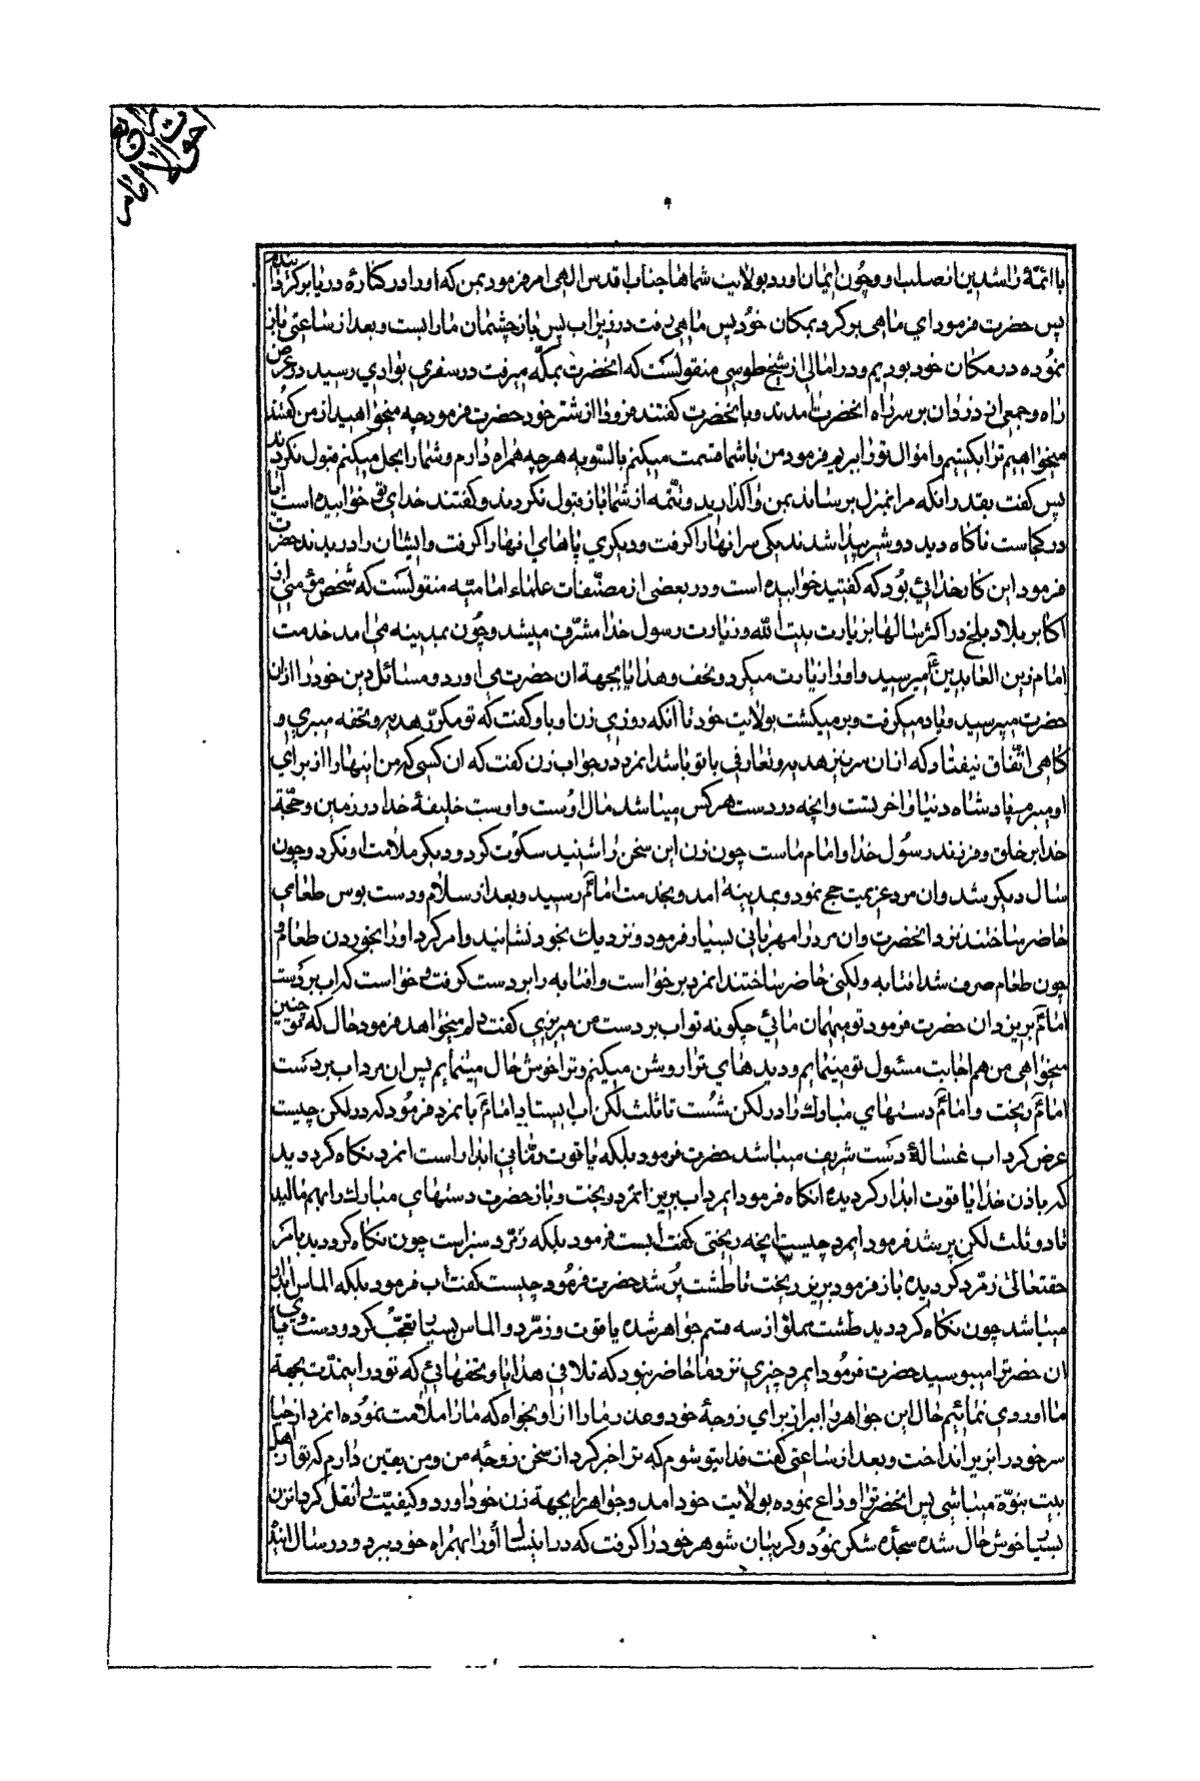 با ائمّهٔ راشدین از صلب او و چون ایمان اورد بولایت شماها جناب اقدس الهی امر فرمود بمن که او را در کنارهٔ دریا بر کردانیدم
پس حضرت فرمود ای ماهی بر کرد بمکان خود پس ماهی رفت در زیر اب پس باز چشمان ما را بست و بعد از ساعتی باز
نموده در مکان خود بودیم و در امالی از شیخ طوسی منقولست که انحضرت بمکّه میرفت در سفری بوادی رسید در عرض
راه و جمعی از دزدان بر سر راه انحضرت امدند و بانحضرت کفتند فرود ا از شتر خود حضرت فرمود چه میخواهید از من کفتند
میخواهیم ترا بکشیم و اموال تو را ببریم فرمود من با شما قسمت میکنم بالسّویه هر چه همراه دارم و شما را بحل میکنم قبول نکردند
پس کفت بقدر انکه مرا بمنزل برساند بمن واکذارید و تتمّه از شما باز قبول نکردند و کفتند خدای تو خوابیده است ایا
در کجاست ناکاه دید دو شیر پیدا شدند یکی سر انها را کرفت و دیکری پاهای انها را کرفت و ایشان را دریدند حضرت
فرمود این کار خدائی بود که کفتید خوابیده است و در بعضی از مصنّفات علماء امامیّه منقولست که شخص مؤمنی از
اکابر بلاد بلخ در اکثر سالها بزیارت بیت الله و زیارت رسول خدا مشرّف میشد و چون بمدینه می امد خدمت
امام زین العابدین ع میرسید و او را زیارت میکرد و تحف و هدایا بجهة ان حضرت می اورد و مسائل دین خود را از ان
حضرت میپرسید و یاد میکرفت و بر میکشت بولایت خود تا انکه روزی زن او باو کفت که تو مکرّر هدیه و تحفه میبری و
کاهی اتّفاق نیفتاد که از ان سر نیز هدیه و تعارفی با تو باشد انمرد در جواب زن کفت که ان کسی که من اینها را از برای
او میبرم پادشاه دنیا و اخرتست و انچه در دست هر کس میباشد مال اوست و اوست خلیفهٔ خدا در زمین و حجّة
خدا بر خلق و فرزند رسول خدا و امام ماست چون زن این سخن را شنید سکوت کرد و دیکر ملامت او نکرد و چون
سال دیکر شد و ان مرد عزیمت حج نمود و بمدینه امد و بخدمت امام ع رسید و بعد از سلام و دست بوس طعامی
حاضر ساختند نزد انحضرت و ان مرد را مهربانی بسیار فرمود و نزدیک بخود نشانید و امر کرد او را بخوردن طعام و
چون طعام صرف شد افتابه و لکنی حاضر ساختند انمرد برخواست و افتابه را بر دست کرفت و خواست که اب بر دست
امام ع بریزد ان حضرت فرمود تو میهمان مائی چکونه تو اب بر دست من میریزی کفت دلم میخواهد فرمود حال که تو چنین
میخواهی من هم اجابت مسئول تو مینمایم و دیدهای ترا روشن میکنم و ترا خوش حال مینمایم پس ان مرد اب بر دست
امام ع ریخت و امام ع دستهای مبارک را در لکن شست تا ثلث لکن اب ایستاد امام ع با نمرد فرمود که در لکن چیست
عرض کرد اب غسالهٔ دست شریف میباشد حضرت فرمود بلکه یاقوت رمّانی ابدار است انمرد نکاه کرد دید
که باذن خدا یاقوت ابدار کردیده انکاه فرمود ایمرد اب بریز انمرد ریخت و باز حضرت دستهای مبارک را بهم مالید
تا دو ثلث لکن پر شد فرمود ایمرد چیست انچه ریختی کفت ابست فرمود بلکه زمرّد سبز است چون نکاه کرد دید بامر
حقتعالی زمرّد کردیده باز فرمود بریز ریخت تا طشت پر شد حضرت فرمود چیست کفت اب فرمود بلکه الماس ابدار
میباشد چون نکاه کرد دید طشت مملوّ از سه قسم جواهر شده یاقوت و زمرّد و الماس بسیار تعجّب کرد و دست و پای
ان حضرت را میبوسید حضرت فرمود ایمرد چیزی نزد ما حاضر نبود که تلافی هدایا و تحفهائی که تو در اینمدّت بجهة
ما اوردی نمائیم حال این جواهر را ببر از برای زوجهٔ خود و عذر ما را از او بخواه که ما را ملامت نموده انمرد از حیا
سر خود را بزیر انداخت و بعد از ساعتی کفت فدایتو شوم که ترا خبر کرد از سخن زوجهٔ من و من یقین دارم که تو از اهل
بیت نبوّة میباشی پس انحضرت را وداع نموده بولایت خود امد و جواهر را بجهة زن خود اورد و کیفیّت را نقل کرد انزن
بسیار خوش حال شده سجدهٔ شکر نمود و کریبان شوهر خود را کرفت که در اینسال او را بهمراه خود ببرد و در سال اینده